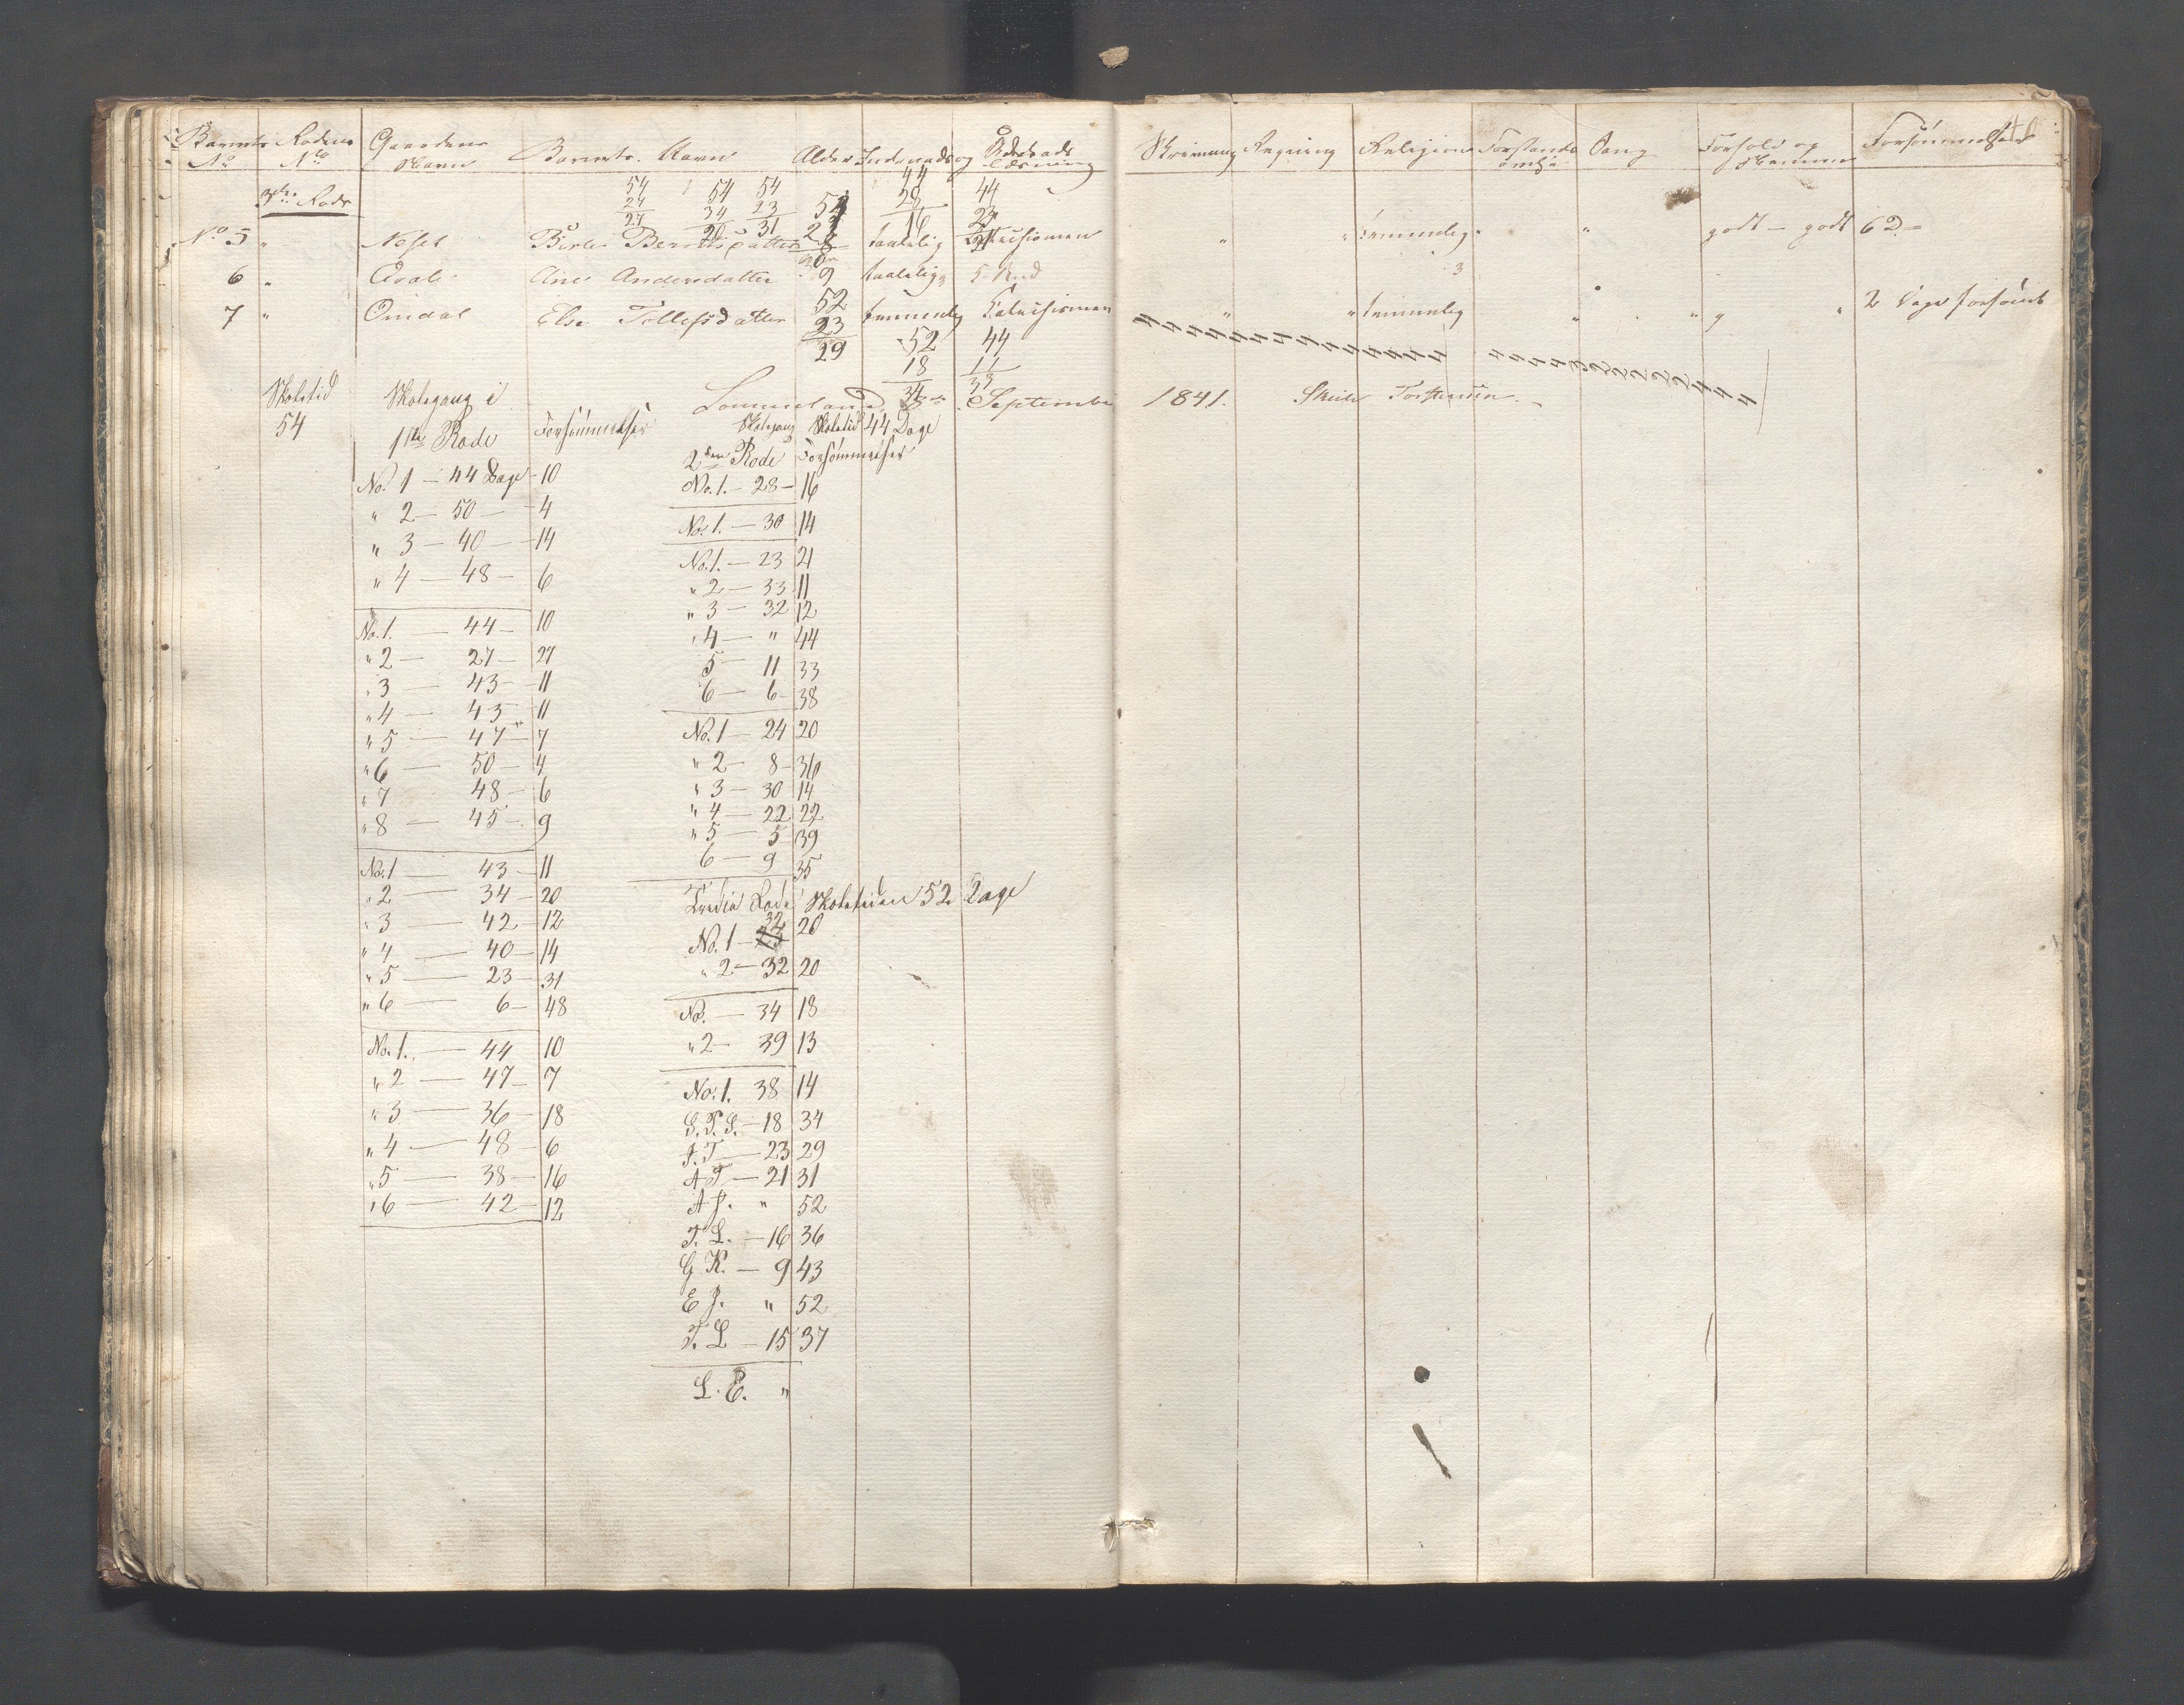 Barnets No Rodens No Gaardens Navn Barnets Navn Alder Indenads og Udenads Læsning Skrivning Regning Religion Forstands Sang Forhold og Forsømmelser
3die Rode
54 24 27
54 34 20
54 23 31
44 28 16
44 23 21
No 5 " Neset Berte Berntsdatter taalelig Catechismen " " temmelig " godt - godt 62 -
6 " Qvale Ane Andersdatter 9 taalelig
7 " Omdal Else Tollefsdatter temmelig Catechismen " " temmelig " " " 2 Dage forsømt
52 23 29
52 18 34
44 11 33
Skoletid 54
Skolegang i
1ste Rode Forsømmelser
No. 1 - 44 Dage - 10
" 2 - 50 - 4
" 3 - 40 - 14
" 4 - 48 - 6
No. 1. - 44 - 10
" 2 - 27 - 27
" 3 - 43 - 11
" 4 - 43 - 11
" 5 - 47 - 7
" 6 - 50 - 4
" 7 48 - 6
" 8 - 45 - 9
No. 1 43 - 11
" 2 - 34 - 20
" 3 - 42 - 12
" 4 - 40 - 14
" 5 - 23 - 31
" 6 - 6 - 48
No. 1. - 44 10
" 2 - 47 - 7
" 3 - 36 - 18
" 4 - 48 - 6
" 5 - 38 - 16
" 6 - 42 - 12
September 1841.
Skolegang Skoletid 44 Dage
2den Rode Forsømmelser
No. 1. - 28 - 16
No. 1. - 30 14
No. 1. - 23 21
" 2 - 33 11
" 3 - 32 12
" 4 - " 44
5 - 11 33
6 - 6 - 38
No. 1 - 24 20
" 2 - 8 - 36
" 3 - 30 14
" 4 - 22 22
" 5 - 5 39
6 - 9 35
Tredie Rode Skoletiden 52 Dage
No. 1 - 32 20
" 2 - 32 20
No. - 34 18
" 2 - 39 13
No. 1. 38 14
S. T. S. - 18 34
A. T - 23 29
A T - 21 31
A J. " 52
T. L. - 16 36
G K. - 9 43
E J. " 52
T. L - 15 37
L. E. "